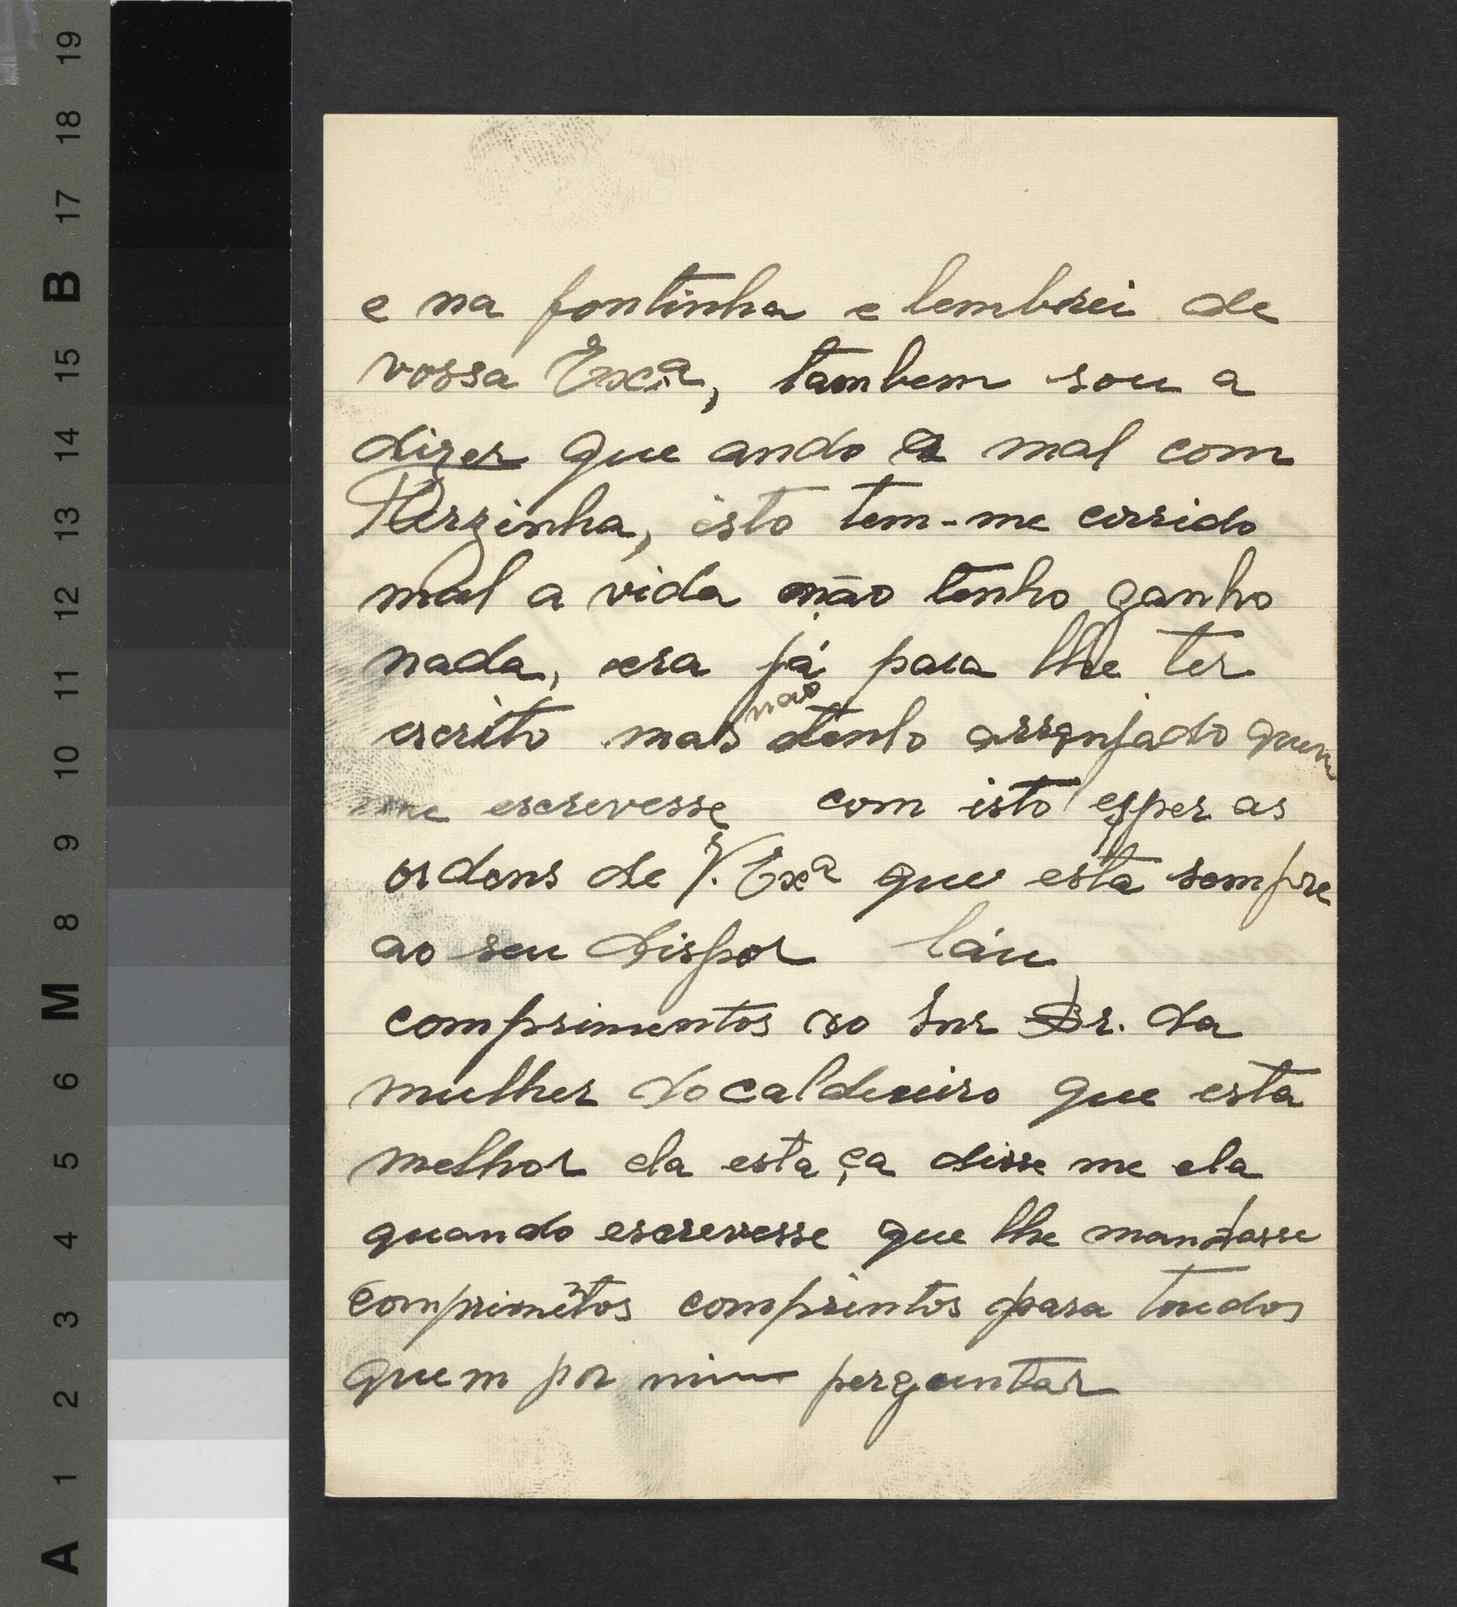 e na fontinha e lembrei de
vossa Exª, tambem sou a
dizer que ando a mal com
isto tem-me corrido
mal a vida não tenho ganho
nada, era já para lhe ter
escrito mas não tenho arranjado quem
me escrevesse com isto esper as
ordens de V. Exª que esta sempre
ao seu dispor
comprimentos ao Snr Dr. da
mulher do caldeeiro que esta
melhor ela esta ça disse me ela
quando escrevesse que lhe mandasse
comprimetos comprintos para toudos
quem por mim perguntar
A 1 2 3 4 5 6 M 8 9 10 11 12 13 14 15 B 17 18 19